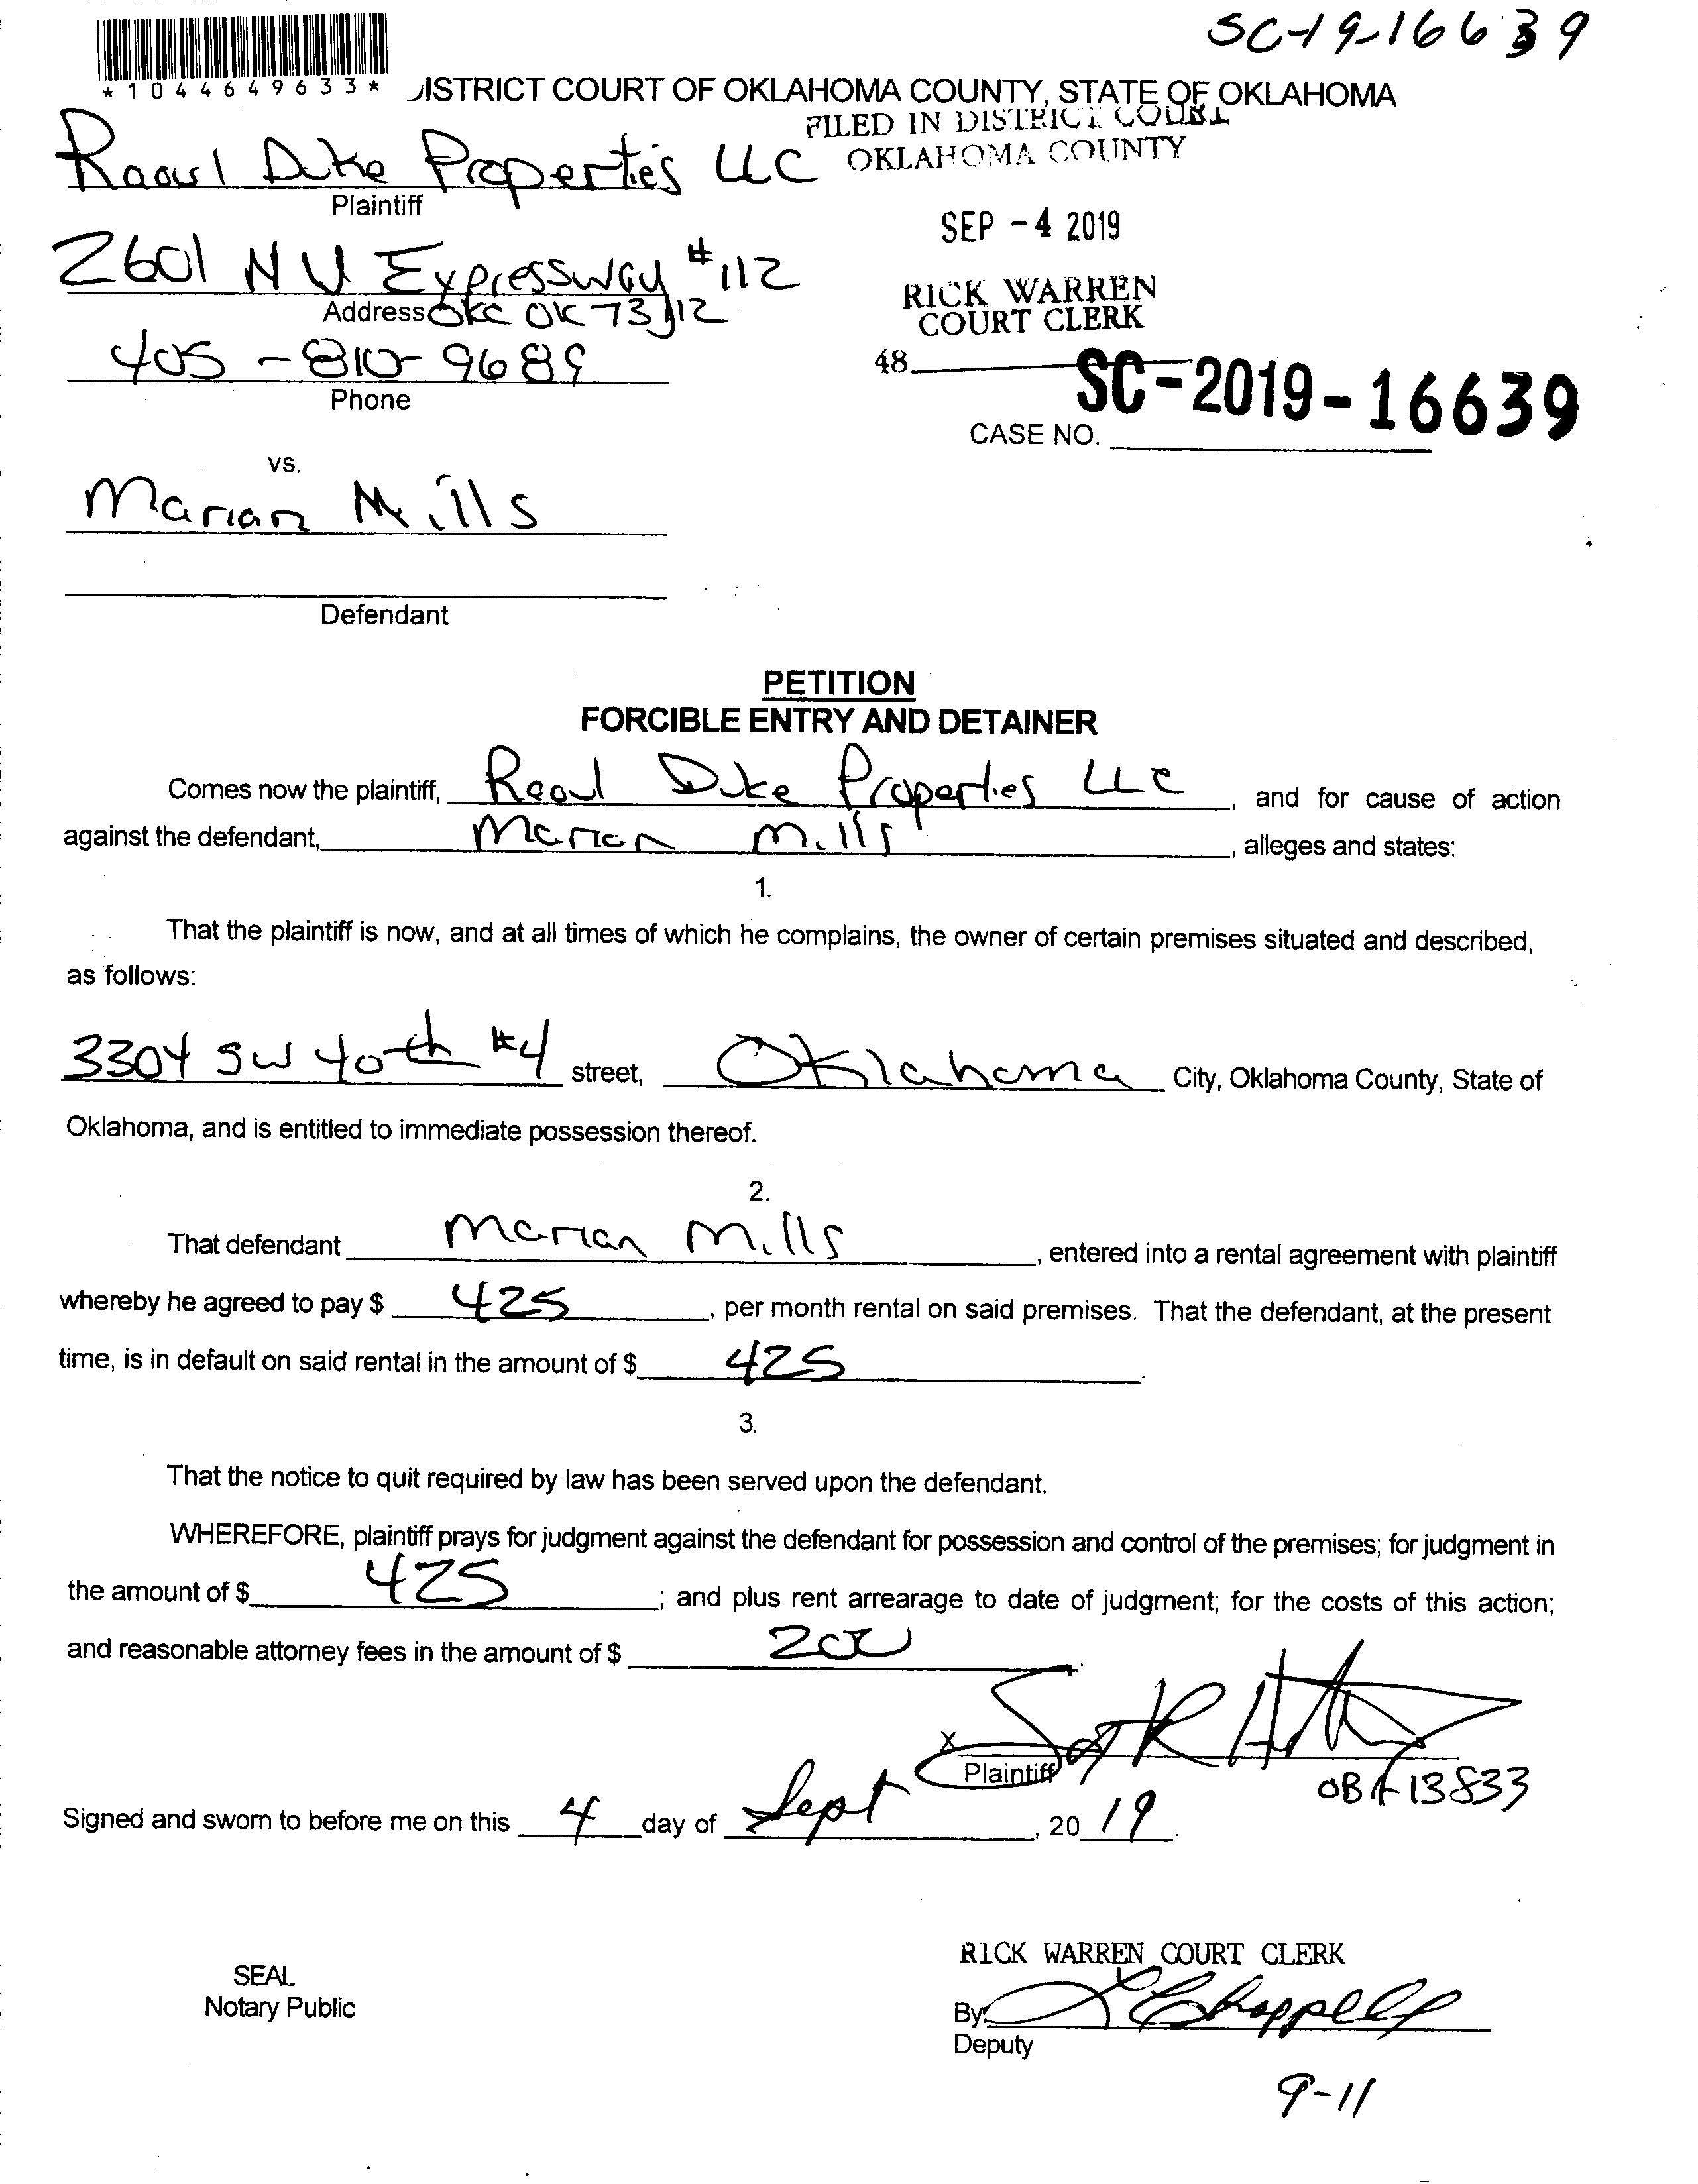 SC-19-16639
*1044649633*
DISTRICT COURT OF OKLAHOMA COUNTY, STATE OF OKLAHOMA
FILED IN DISTRICT COURT
OKLAHOMA COUNTY
Raoul Duke Properties LLC
Plaintiff
SEP -4 2019
2601 NW Expressway #112
Address OKC OK 73112
RICK WARREN
COURT CLERK
405-810-9689
48
Phone
SC-2019-16639
CASE NO.
vs.
Marian Mills
Defendant
PETITION
FORCIBLE ENTRY AND DETAINER
Comes now the plaintiff, Raoul Duke Properties LLC, and for cause of action
against the defendant, Marian Mills, alleges and states:
1.
That the plaintiff is now, and at all times of which he complains, the owner of certain premises situated and described,
as follows:
3304 SW 40th #4 street, Oklahoma City, Oklahoma County, State of
Oklahoma, and is entitled to immediate possession thereof.
2.
That defendant Marian Mills, entered into a rental agreement with plaintiff
whereby he agreed to pay $ 425, per month rental on said premises. That the defendant, at the present
time, is in default on said rental in the amount of $ 425.
3.
That the notice to quit required by law has been served upon the defendant.
WHEREFORE, plaintiff prays for judgment against the defendant for possession and control of the premises; for judgment in
the amount of $ 425; and plus rent arrearage to date of judgment; for the costs of this action;
and reasonable attorney fees in the amount of $ 200.
X
Plaintiff
OBA 13833
Signed and sworn to before me on this 4 day of Sept, 2019.
RICK WARREN COURT CLERK
SEAL
Notary Public
By: L Chappell
Deputy
9-11